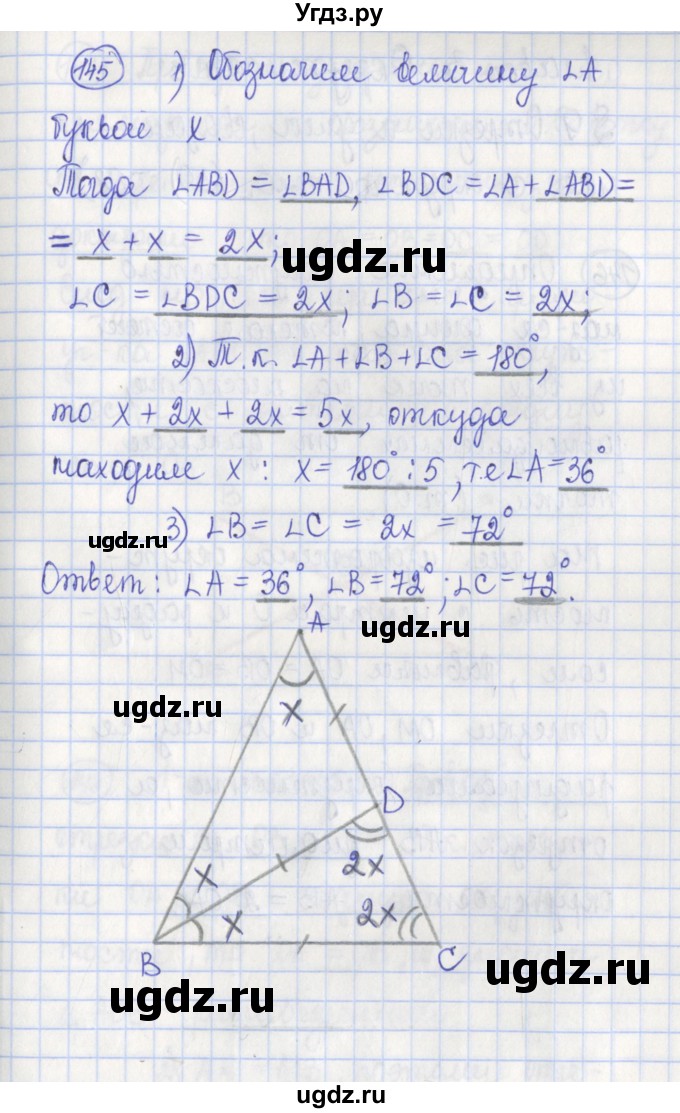 Угдз.ру
145 1) Обозначим величину ∠A
буквой x.
Тогда ∠ABD = ∠BAD, ∠BDC = ∠A + ∠ABD =
= x + x = 2x;
ugdz.ru
∠C = ∠BDC = 2x; ∠B = ∠C = 2x;
2) Т.к. ∠A + ∠B + ∠C = 180°,
то x + 2x + 2x = 5x, откуда
находим x : x = 180° : 5, т.е ∠A = 36°
ugdz.ru 3) ∠B = ∠C = 2x = 72°
Ответ: ∠A = 36°, ∠B = 72°; ∠C = 72°.
A
ugdz.ru
ugdz.ru
x
D
x
2x
x
2x
B
C
ugdz.ru
ugdz.ru
ugdz.ru